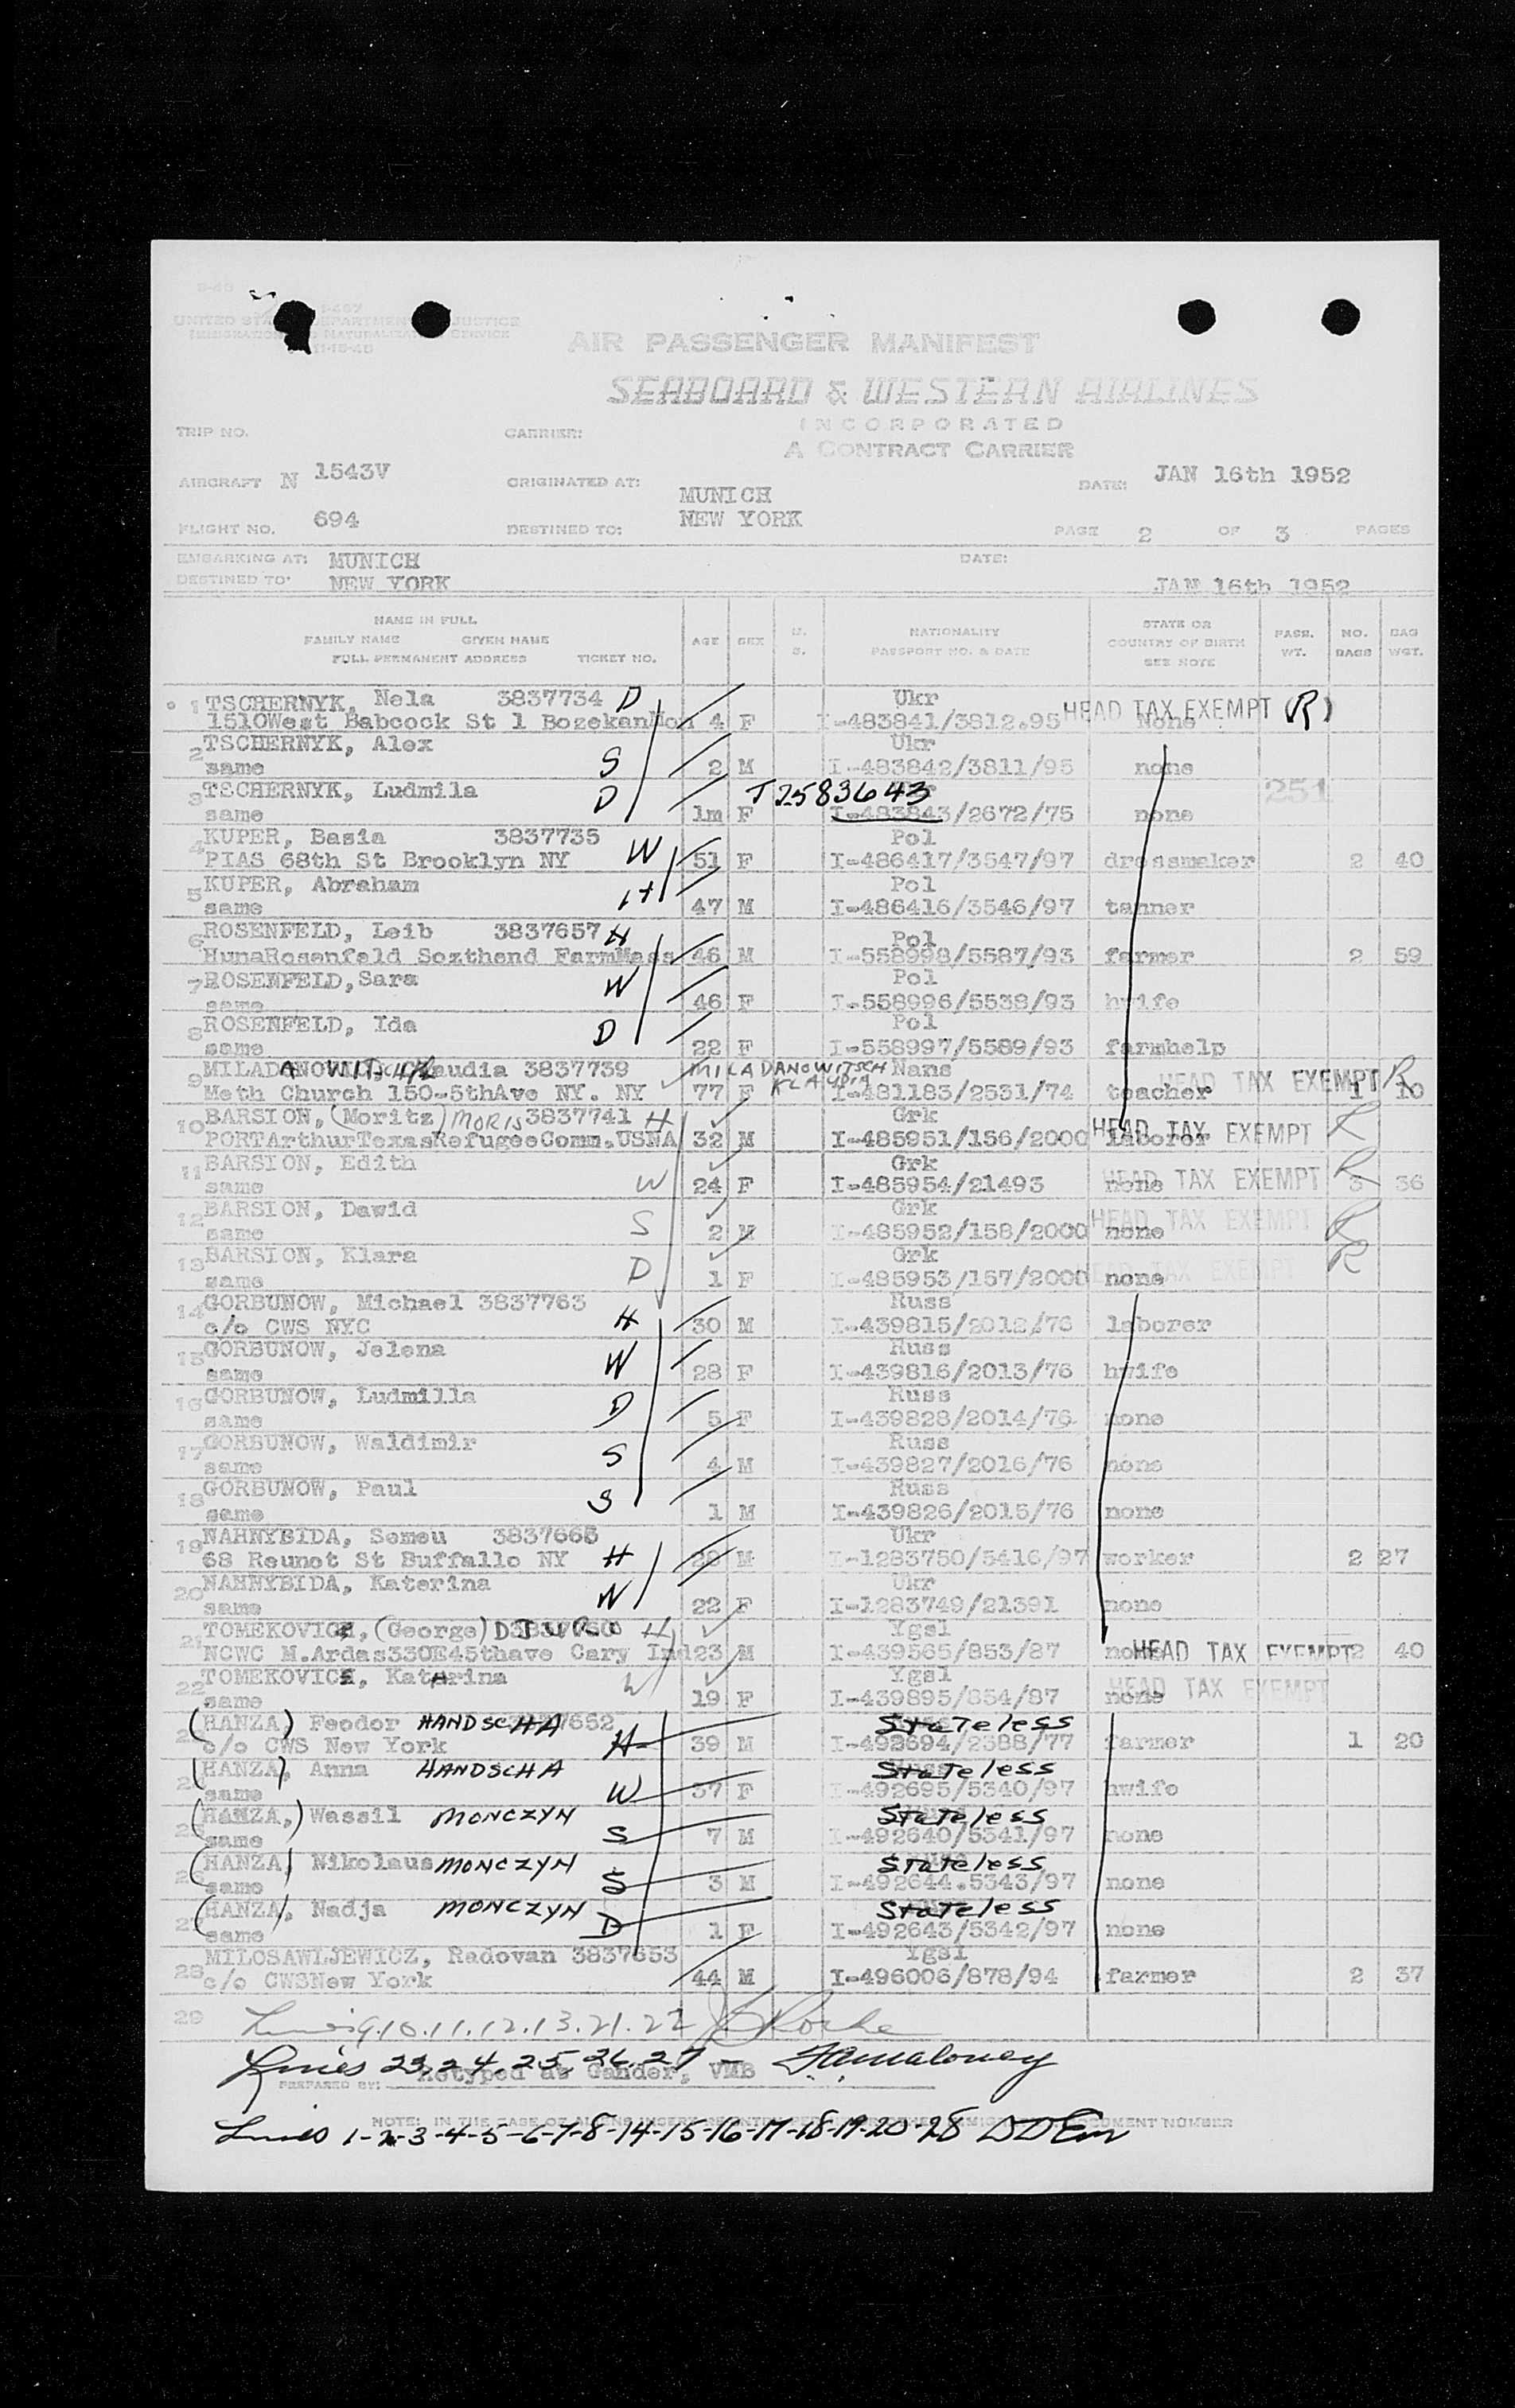 I-467
UNITED STATES DEPARTMENT OF JUSTICE
IMMIGRATION AND NATURALIZATION SERVICE
11-15-45
AIR PASSENGER MANIFEST
SEABOARD & WESTERN AIRLINES
INCORPORATED
A CONTRACT CARRIER
TRIP NO. CARRIER:
AIRCRAFT N 1543V ORIGINATED AT: MUNICH DATE: JAN 16th 1952
FLIGHT NO. 694 DESTINED TO: NEW YORK PAGE 2 OF 3 PAGES
EMBARKING AT: MUNICH DATE:
DESTINED TO: NEW YORK JAN 16th 1952
NAME IN FULL
FAMILY NAME GIVEN NAME AGE SEX U. S. NATIONALITY STATE OR COUNTRY OF BIRTH PASS. WT. NO. BAGS BAG WGT.
FULL PERMANENT ADDRESS TICKET NO. PASSPORT NO. & DATE SEE NOTE
1 TSCHERNYK, Nela 3837734 D Ukr HEAD TAX EXEMPT (R)
1510West Babcock St 1 Bozekan 4 F I-483841/3812.95 None
2 TSCHERNYK, Alex Ukr
same S 2 M I-483842/3811/95 none
3 TSCHERNYK, Ludmila T2583643 251
same D 1m F I-483843/2672/75 none
4 KUPER, Basia 3837735 Pol
PIAS 68th St Brooklyn NY W 51 F I-486417/3547/97 dressmaker 2 40
5 KUPER, Abraham Pol
same H 47 M I-486416/3546/97 tanner
6 ROSENFELD, Leib 3837657 H Pol
HunaRosenfeld Sozthend FarmMass 46 M I-558998/5587/93 farmer 2 59
7 ROSENFELD, Sara W Pol
same 46 F I-558996/5538/93 hwife
8 ROSENFELD, Ida D Pol
same 22 F I-558997/5589/93 farmhelp
9 MILADANOWITSCH, Klaudia 3837739 MILADANOWITSCH KLAUDIA Nans HEAD TAX EXEMPT R
Meth Church 150-5thAve NY. NY 77 F I-481183/2531/74 teacher 1 10
10 BARSION, (Moritz) MORIS 3837741 H Grk HEAD TAX EXEMPT R
PORTArthurTexasRefugeeComm.USNA 32 M I-485951/156/2000 laborer
11 BARSION, Edith Grk HEAD TAX EXEMPT R
same W 24 F I-485954/21493 none 3 36
12 BARSION, Dawid Grk HEAD TAX EXEMPT R
same S 2 M I-485952/158/2000 none
13 BARSION, Klara Grk HEAD TAX EXEMPT R
same D 1 F I-485953/157/2000 none
14 GORBUNOW, Michael 3837763 Russ
c/o CWS NYC H 30 M I-439815/2012/76 laborer
15 GORBUNOW, Jelena Russ
same W 28 F I-439816/2013/76 hwife
16 GORBUNOW, Ludmilla Russ
same D 5 F I-439828/2014/76 none
17 GORBUNOW, Waldimir Russ
same S 4 M I-439827/2016/76 none
18 GORBUNOW, Paul Russ
same S 1 M I-439826/2015/76 none
19 NAHNYBIDA, Semeu 3837665 Ukr
68 Reunot St Buffallo NY H 28 M I-1283750/5416/97 worker 2 27
20 NAHNYBIDA, Katerina Ukr
same W 22 F I-1283749/21391 none
21 TOMEKOVICH, (George) DJURO H Ygsl
NCWC M.Ardas330E45thave Gary Ind 23 M I-439565/853/87 none HEAD TAX EXEMPT 2 40
22 TOMEKOVICH, Katarina W Ygsl HEAD TAX EXEMPT
same 19 F I-439895/854/87 none
(HANZA) Feodor HANDSCHA 3837652 Stateless
c/o CWS New York H 39 M I-492694/2388/77 farmer 1 20
(HANZA), Anna HANDSCHA Stateless
same W 37 F I-492695/5340/97 hwife
(HANZA,) Wassil MONCZYN Stateless
same S 7 M I-492640/5341/97 none
(HANZA) Nikolaus MONCZYN Stateless
same S 3 M I-492644.5343/97 none
(HANZA), Nadja MONCZYN Stateless
same D 1 F I-492643/5342/97 none
28 MILOSAWLJEWICZ, Radovan 3837653 Ygsl
c/o CWSNew York 44 M I-496006/878/94 farmer 2 37
29 Lines 9.10.11.12.13.21.22 Roche
Lines 23.24.25.26.27 - Maloney
PREPARED BY: Retyped at Gander, VMB
NOTE: IN THE CASE OF ALIENS DOCUMENT NUMBER
Lines 1-2-3-4-5-6-7-8-14-15-16-17-18-19-20-28